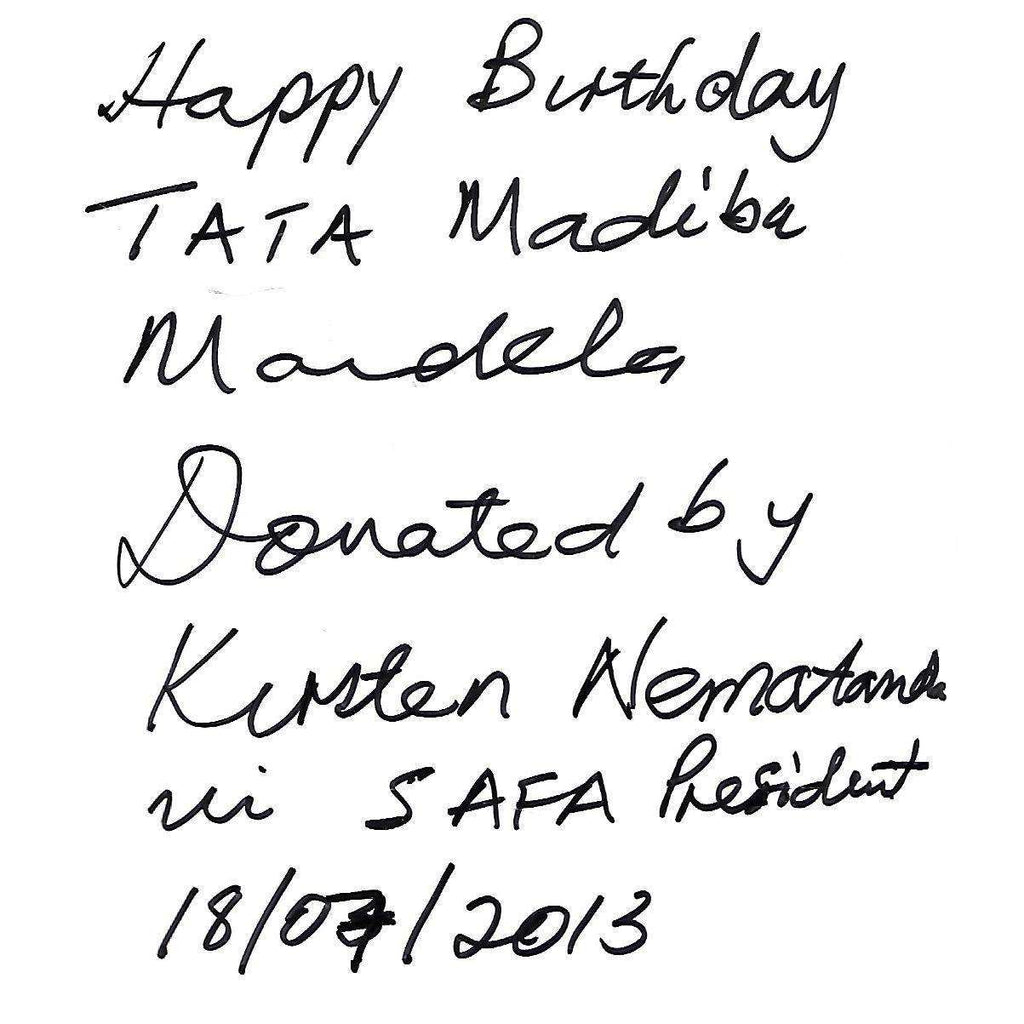 Happy Birthday
TATA Madiba
Mandela
Donated by
Kirsten Nematanda
ni SAFA President
18/07/2013